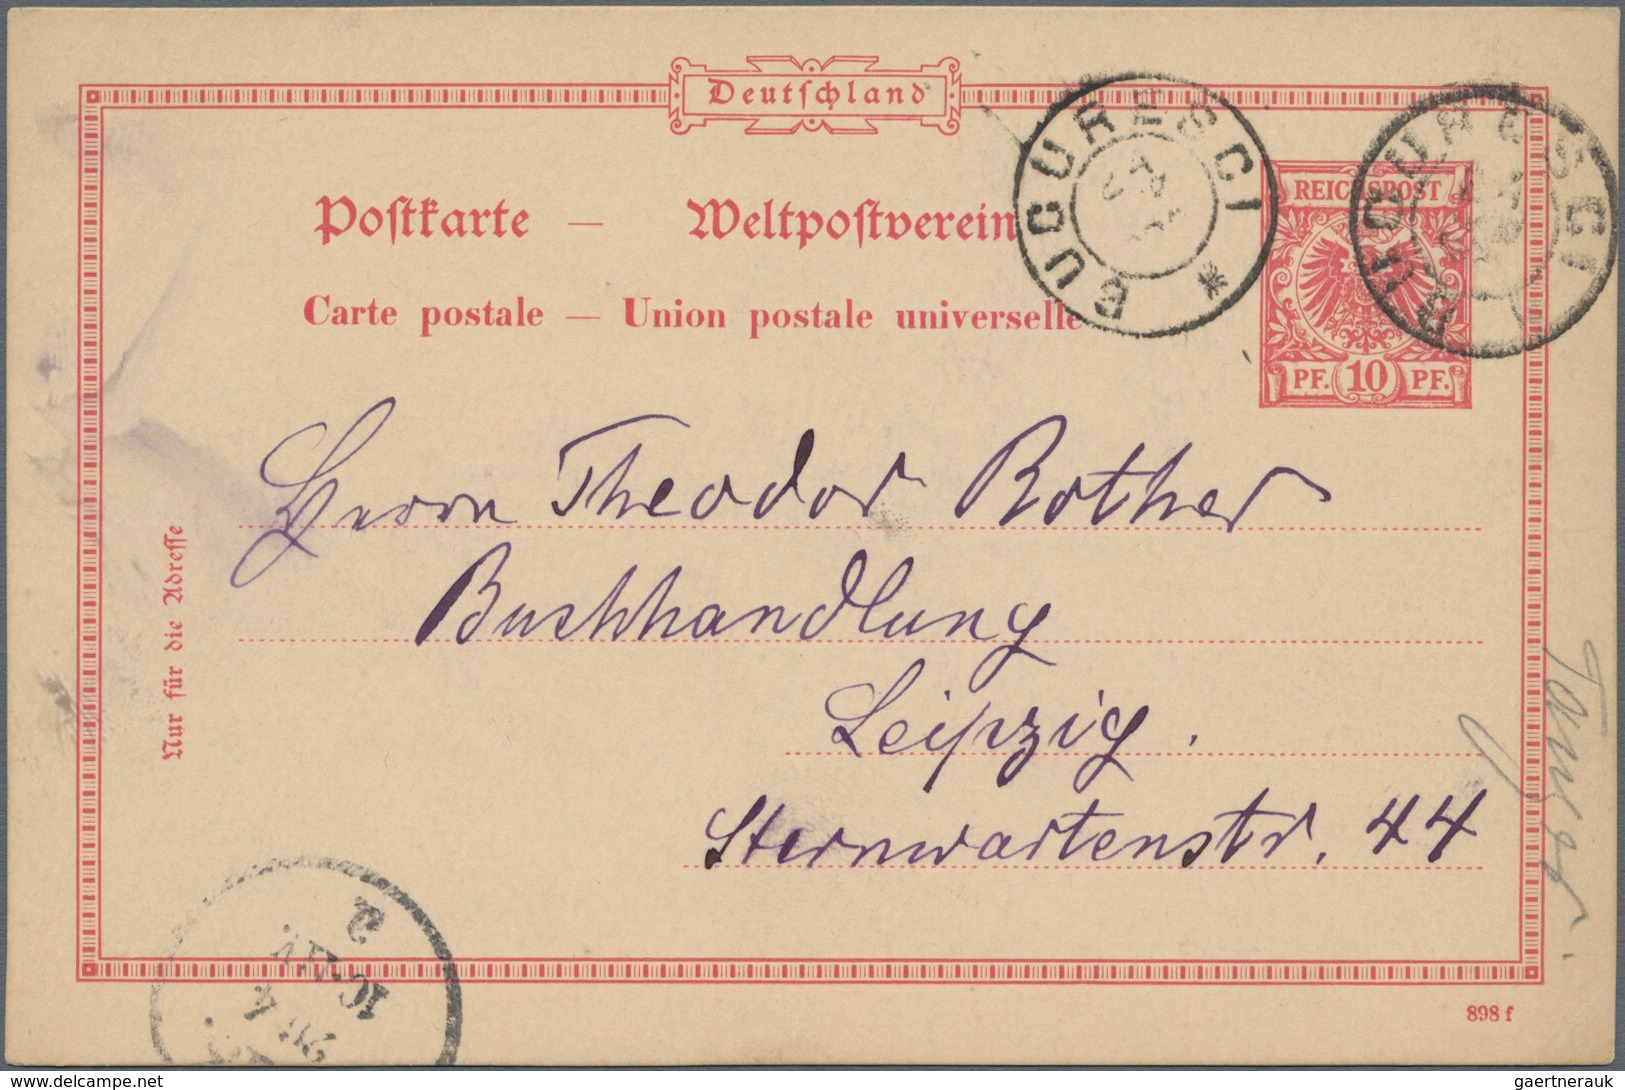 Deutſchland
Poſtkarte — Weltpoſtverein
Carte postale — Union postale universelle
BUCURESCI *
BUCURESCI
REICHSPOST
PF. 10 PF.
Herrn Theodor Rother
Buchhandlung
Leipzig.
Sternwartenstr. 44
Nur für die Adreſſe
898 f
gaertnerauk @ delcampe.net